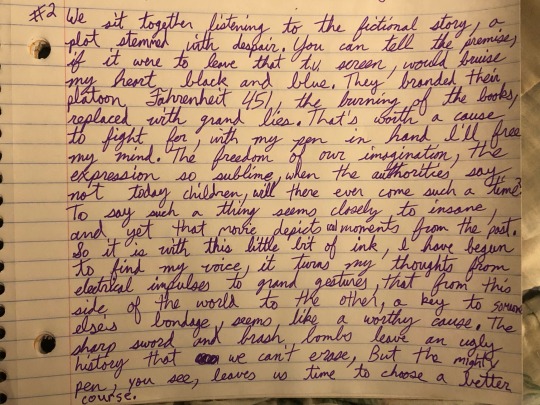 #2 We sit together listening to the fictional story, a
plot stemmed with despair. You can tell the premise,
if it were to leave that t.v. screen, would bruise
my heart black and blue. They branded their
platoon Fahrenheit 451, the burning of the books,
replaced with grand lies. That's worth a cause
to fight for, with my pen in hand I'll free
my mind. The freedom of our imagination, the
expression so sublime, when the authorities say
not today children, will there ever come such a time?
To say such a thing seems closely to insane,
and yet that movie depicts moments from the past.
So it is with this little bit of ink, I have begun
to find my voice, it turns my thoughts from
electrical impulses to grand gestures, that from this
side of the world to the other, a key to someone
else's bondage, seems like a worthy cause. The
sharp sword and brash, bombs leave an ugly
history that we can't erase, But the mighty
pen, you see, leaves us time to choose a better
course.